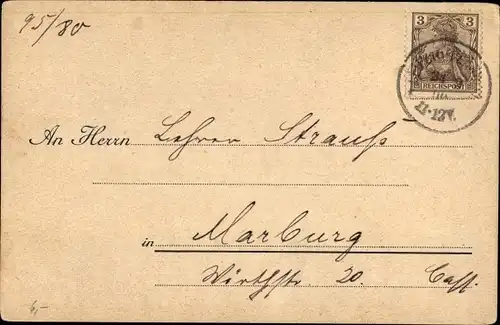 95/80
3 3
REICHSPOST
11-12V.
An Herrn Lehrer Strauß
in Marburg
Wörthstr. 20. Cass.